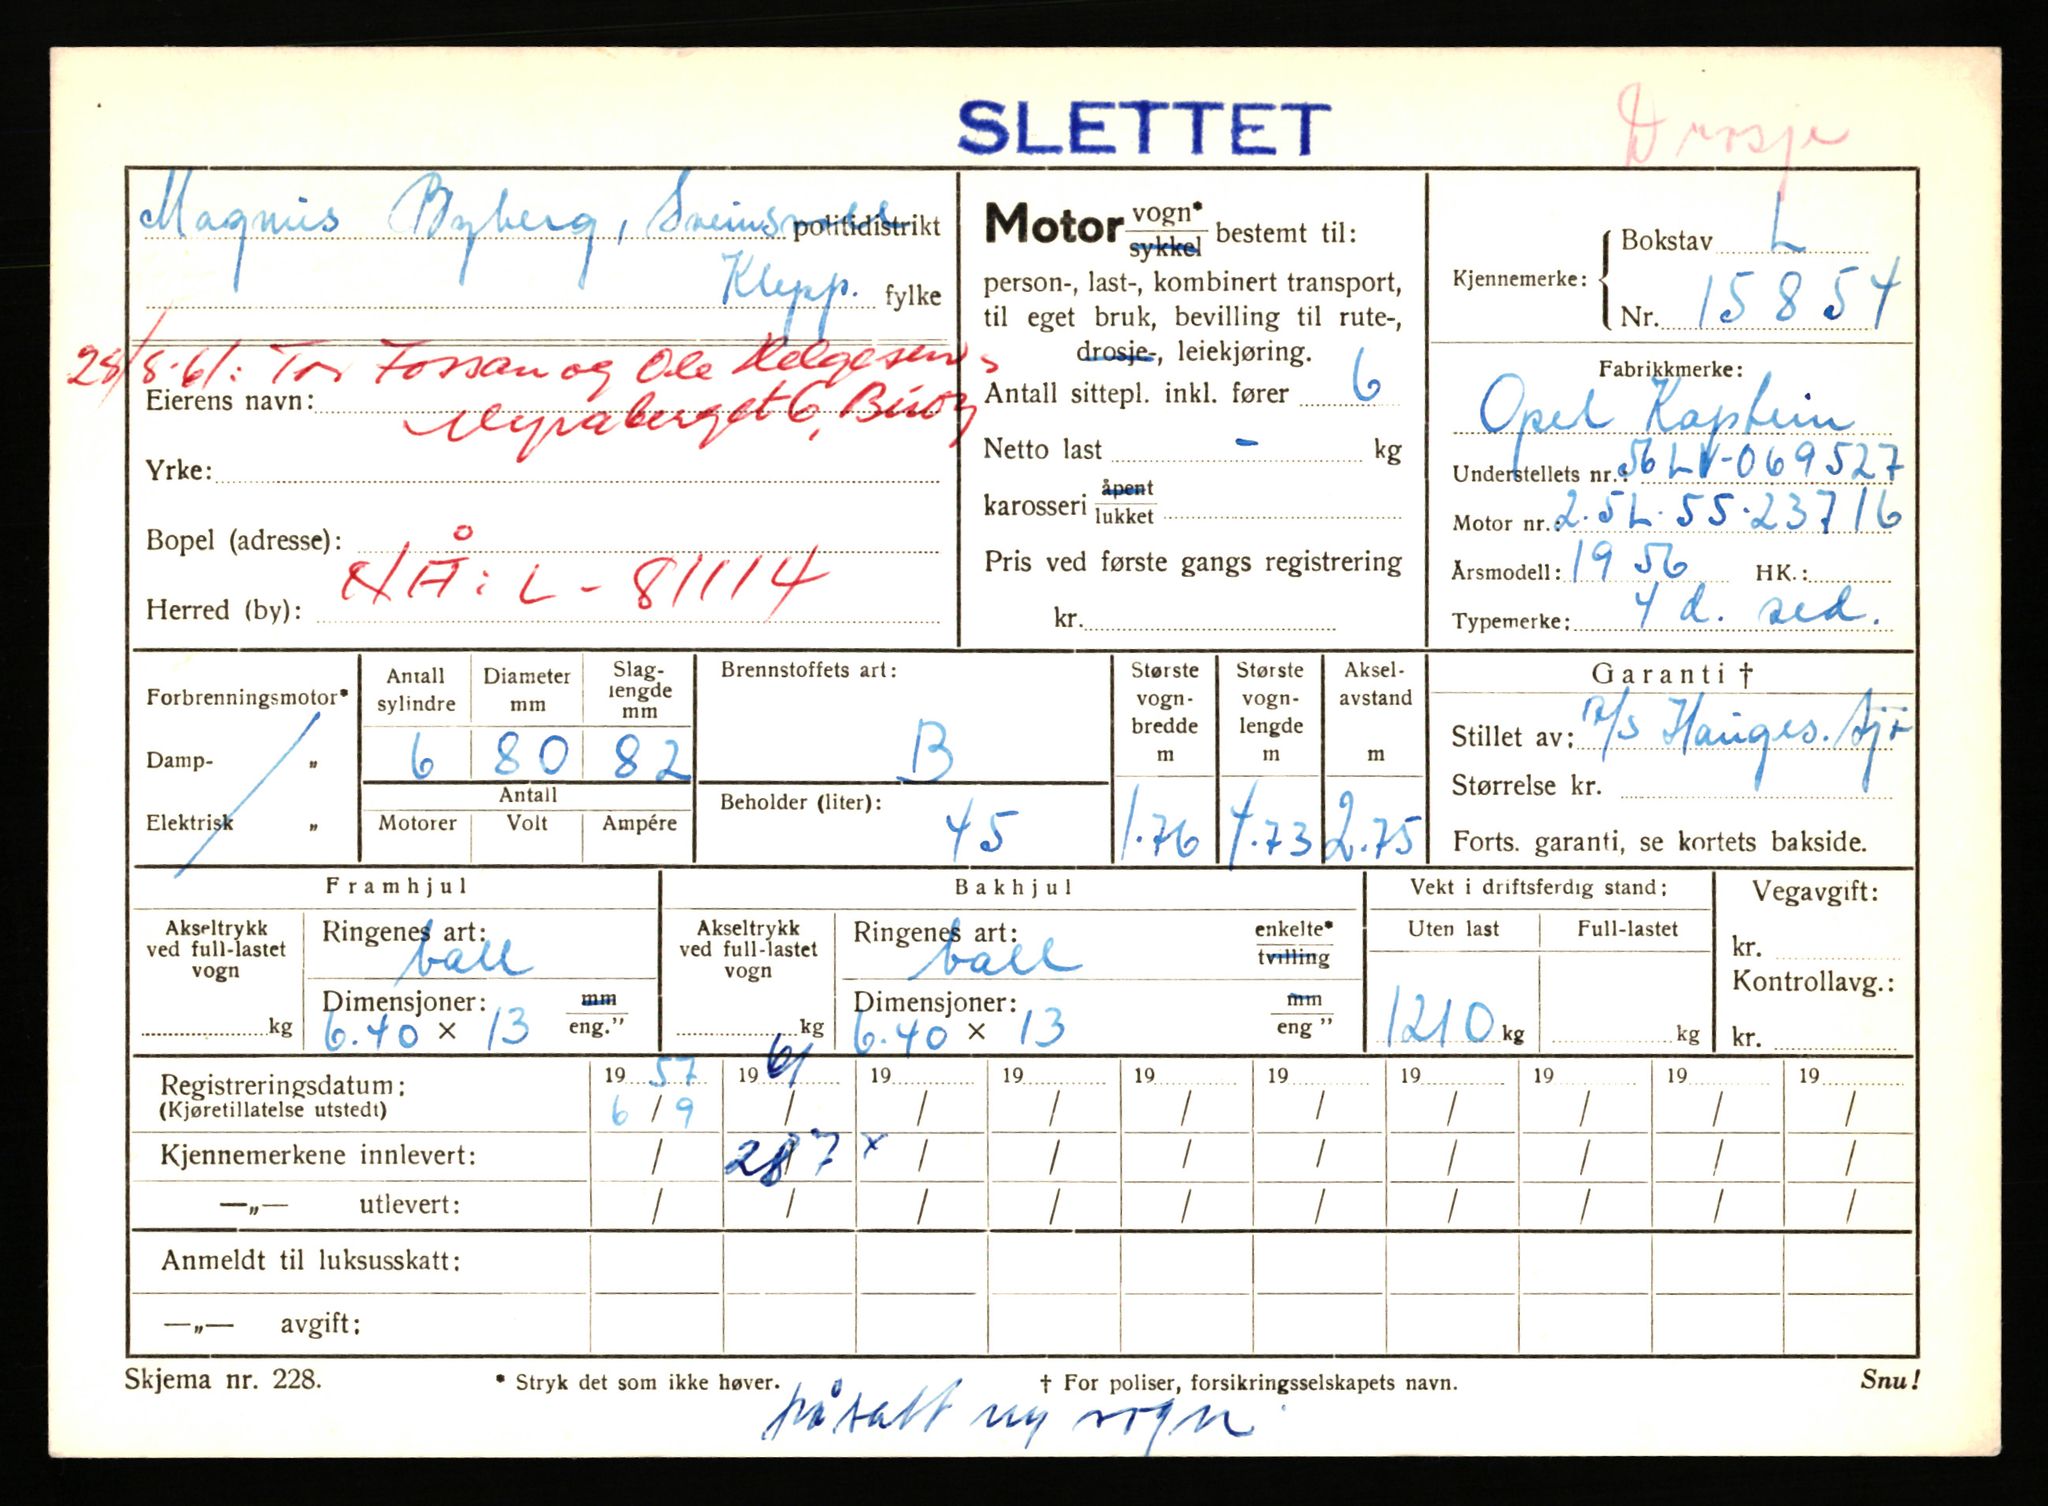 SLETTET
Drosje
Magnus Byberg, politidistrikt
Klepp. fylke
28/8-61: Tor Fossan og Ole Helgesen,
Myraberget 6, Buøy
Eierens navn:
Yrke:
Bopel (adresse):
NÅ: L - 81114
Herred (by):
Motor vogn* sykkel bestemt til:
person-, last-, kombinert transport,
til eget bruk, bevilling til rute-,
drosje-, leiekjøring.
Antall sittepl. inkl. fører 6
Netto last - kg
karosseri åpent lukket
Pris ved første gangs registrering
kr.
Kjennemerke: Bokstav L
Nr. 15854
Fabrikkmerke:
Opel Kaptein
Understellets nr.: 56 LV-069527
Motor nr.: 2.5L.55.23716
Årsmodell: 1956 HK.:
Typemerke: 4 d. sed.
Forbrenningsmotor*
Damp- „
Elektrisk „
Antall sylindre
6
Diameter mm
80
Slag-lengde mm
82
Antall
Motorer Volt Ampére
Brennstoffets art:
B
Beholder (liter):
45
Største vogn-bredde m
1.76
Største vogn-lengde m
4.73
Aksel-avstand m
2.75
Garanti †
Stillet av: A/S Hauges. Sjø
Størrelse kr.
Forts. garanti, se kortets bakside.
Framhjul
Akseltrykk ved full-lastet vogn
kg
Ringenes art:
ball
Dimensjoner: mm
6.40 × 13 eng."
Bakhjul
Akseltrykk ved full-lastet vogn
kg
Ringenes art: enkelte*
ball tvilling
Dimensjoner: mm
6.40 × 13 eng "
Vekt i driftsferdig stand:
Uten last Full-lastet
1210 kg kg
Vegavgift:
kr.
Kontrollavg.:
kr.
Registreringsdatum: 19 57 19 61 19 19 19 19 19 19 19 19
(Kjøretillatelse utstedt) 6 / 9 / / / / / / / / /
Kjennemerkene innlevert: / 28/7 x / / / / / / / /
—„— utlevert: / / / / / / / / / /
Anmeldt til luksusskatt:
—„— avgift:
Skjema nr. 228. * Stryk det som ikke høver. † For poliser, forsikringsselskapets navn. Snu!
påsatt ny vogn